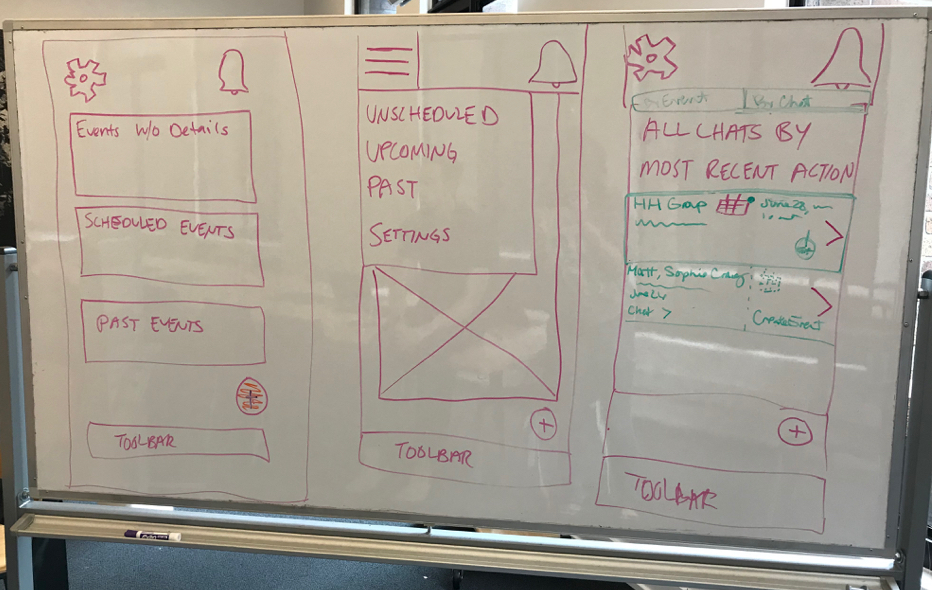 Events w/o Details
SCHEDULED EVENTS
PAST EVENTS
TOOLBAR
UNSCHEDULED
UPCOMING
PAST
SETTINGS
+
TOOLBAR
Event
By Chat
ALL CHATS BY
MOST RECENT ACTION
HH Group
June 28,
Matt, Sophie
Chat >
Create Event
+
TOOLBAR